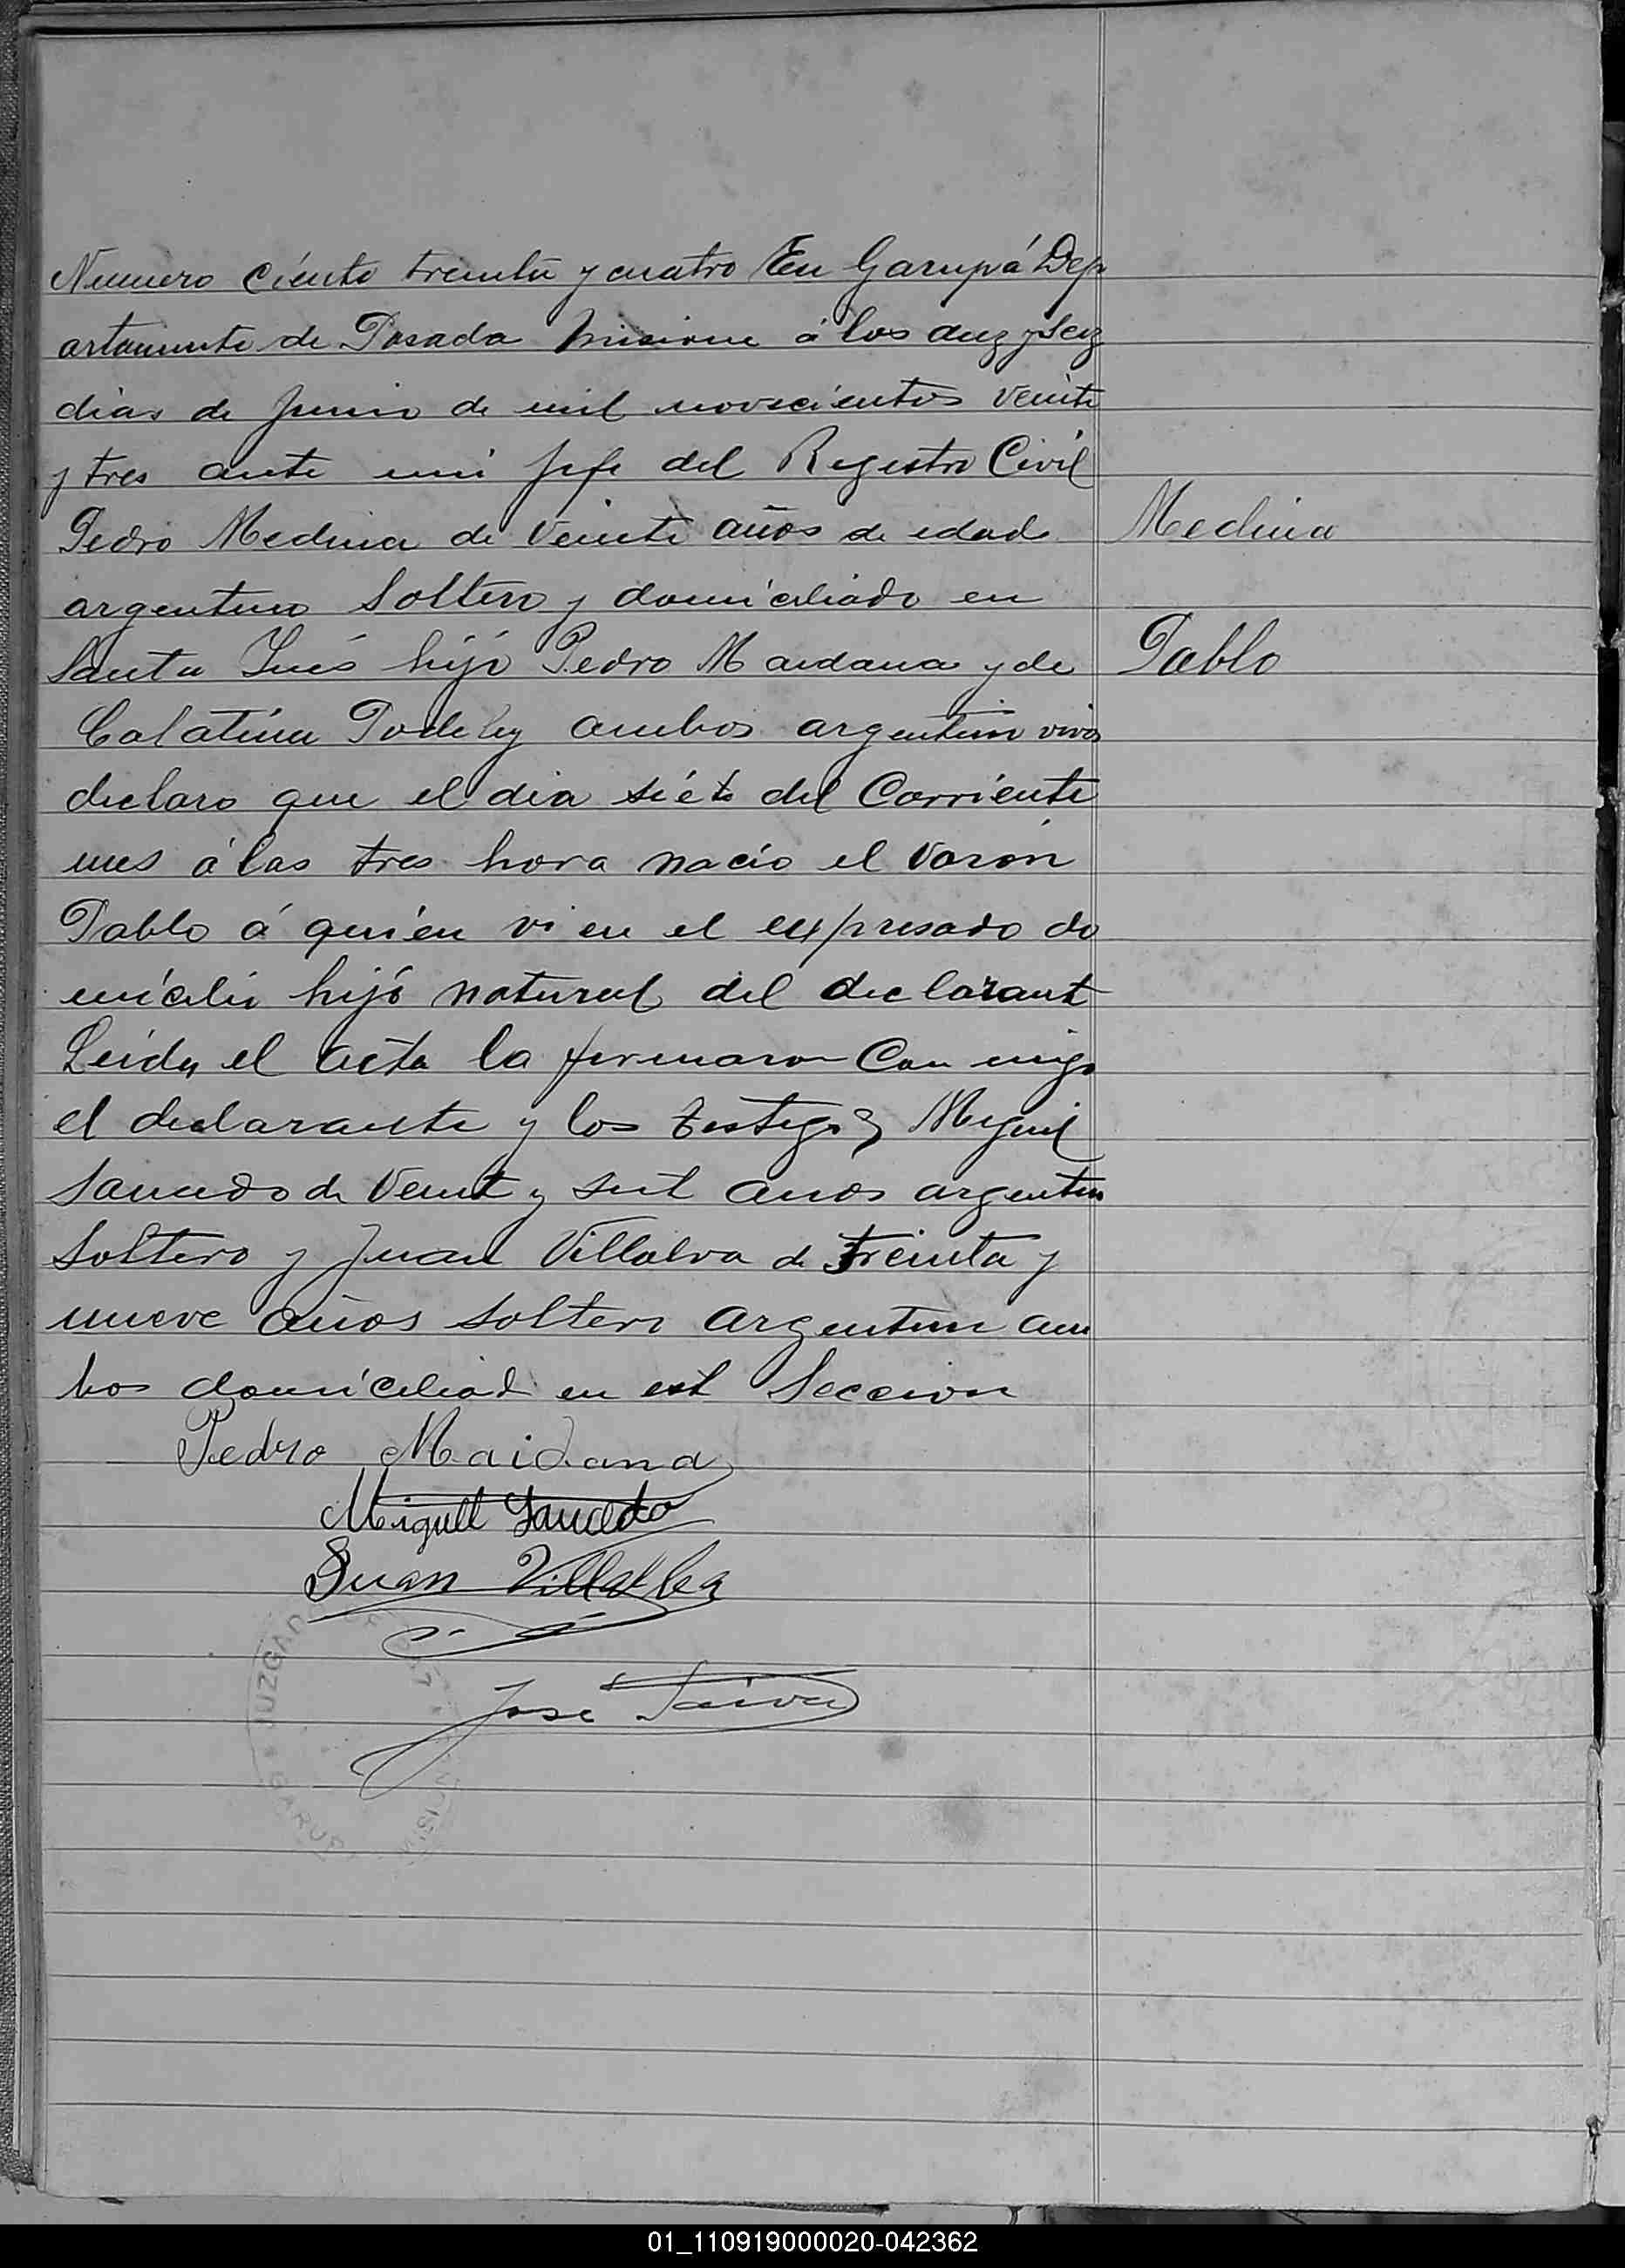 Numero ciento treinta y cuatro En Garupá Dep
artamento de Posada Misione á los diez y seiz
dias de Junio de mil novecientos veinte
y tres ante mi Jefe del Registro Civil
Pedro Medina de veinte años de edad
Medina
argentino soltero y domiciliado en
Santa Inés hijó Pedro Maidana y de
Pablo
Calatina ambos argentin vivos
declaro que el dia siéte del Corriente
mes á las tres hora nacio el varón
Pablo á quién vi en el expresado do
micilio hijó natural del declarant
Leida el acta la firmaron Con migo
el declarante y los testigos Miguel
Saucedo de Veint y siet anos argentin
Soltero y Juan Villalva de treinta y
nueve años soltero argentino am
bos domiciliad en est Seccion
Pedro Maidana
Miguel Saucedo
Juan Villalba
Jose Paiva
JUZGAD
GARUP
MISIO
01_110919000020-042362